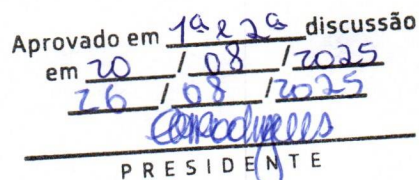 Aprovado em 1ª e 2ª discussão
em 20 / 08 / 2025
26 / 08 / 2025
PRESIDENTE